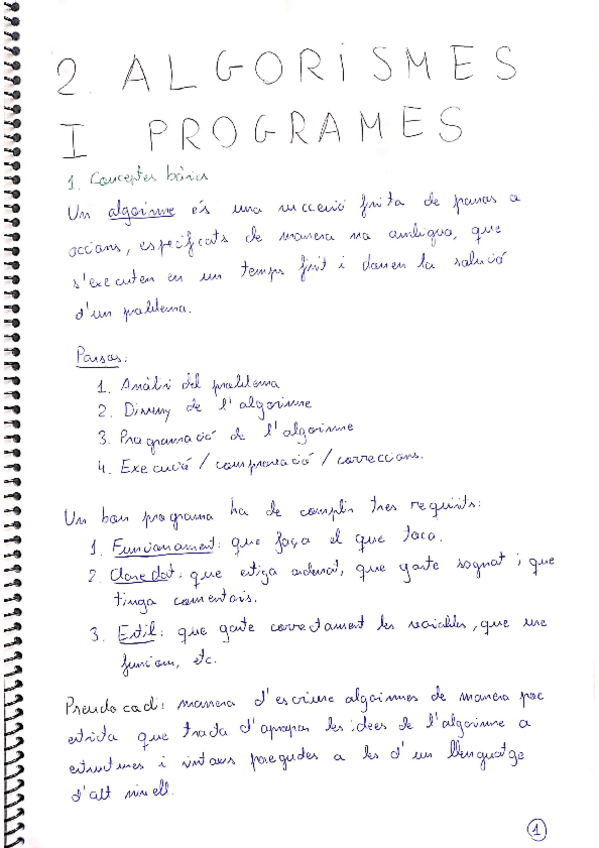 2. ALGORISMES
I PROGRAMES
1. Conceptes bàsics
Un algorisme és una successió finita de passos o
accions, especificats de manera no ambigua, que
s'executen en un temps finit i donen la solució
d'un problema.
Passos:
1. Anàlisi del problema
2. Disseny de l'algorisme
3. Programació de l'algorisme
4. Execució / comprovació / correccions.
Un bon programa ha de complir tres requisits:
1. Funcionament: que faça el que toca.
2. Claredat: que estiga ordenat, que gaste sagnat i que
tinga comentaris.
3. Estil: que gaste correctament les variables, que use
funcions, etc.
Pseudocodi: manera d'escriure algorismes de manera poc
estricta que trata d'apropar les idees de l'algorisme a
estructures i sintaxis paregudes a les d'un llenguatge
d'alt nivell.
1